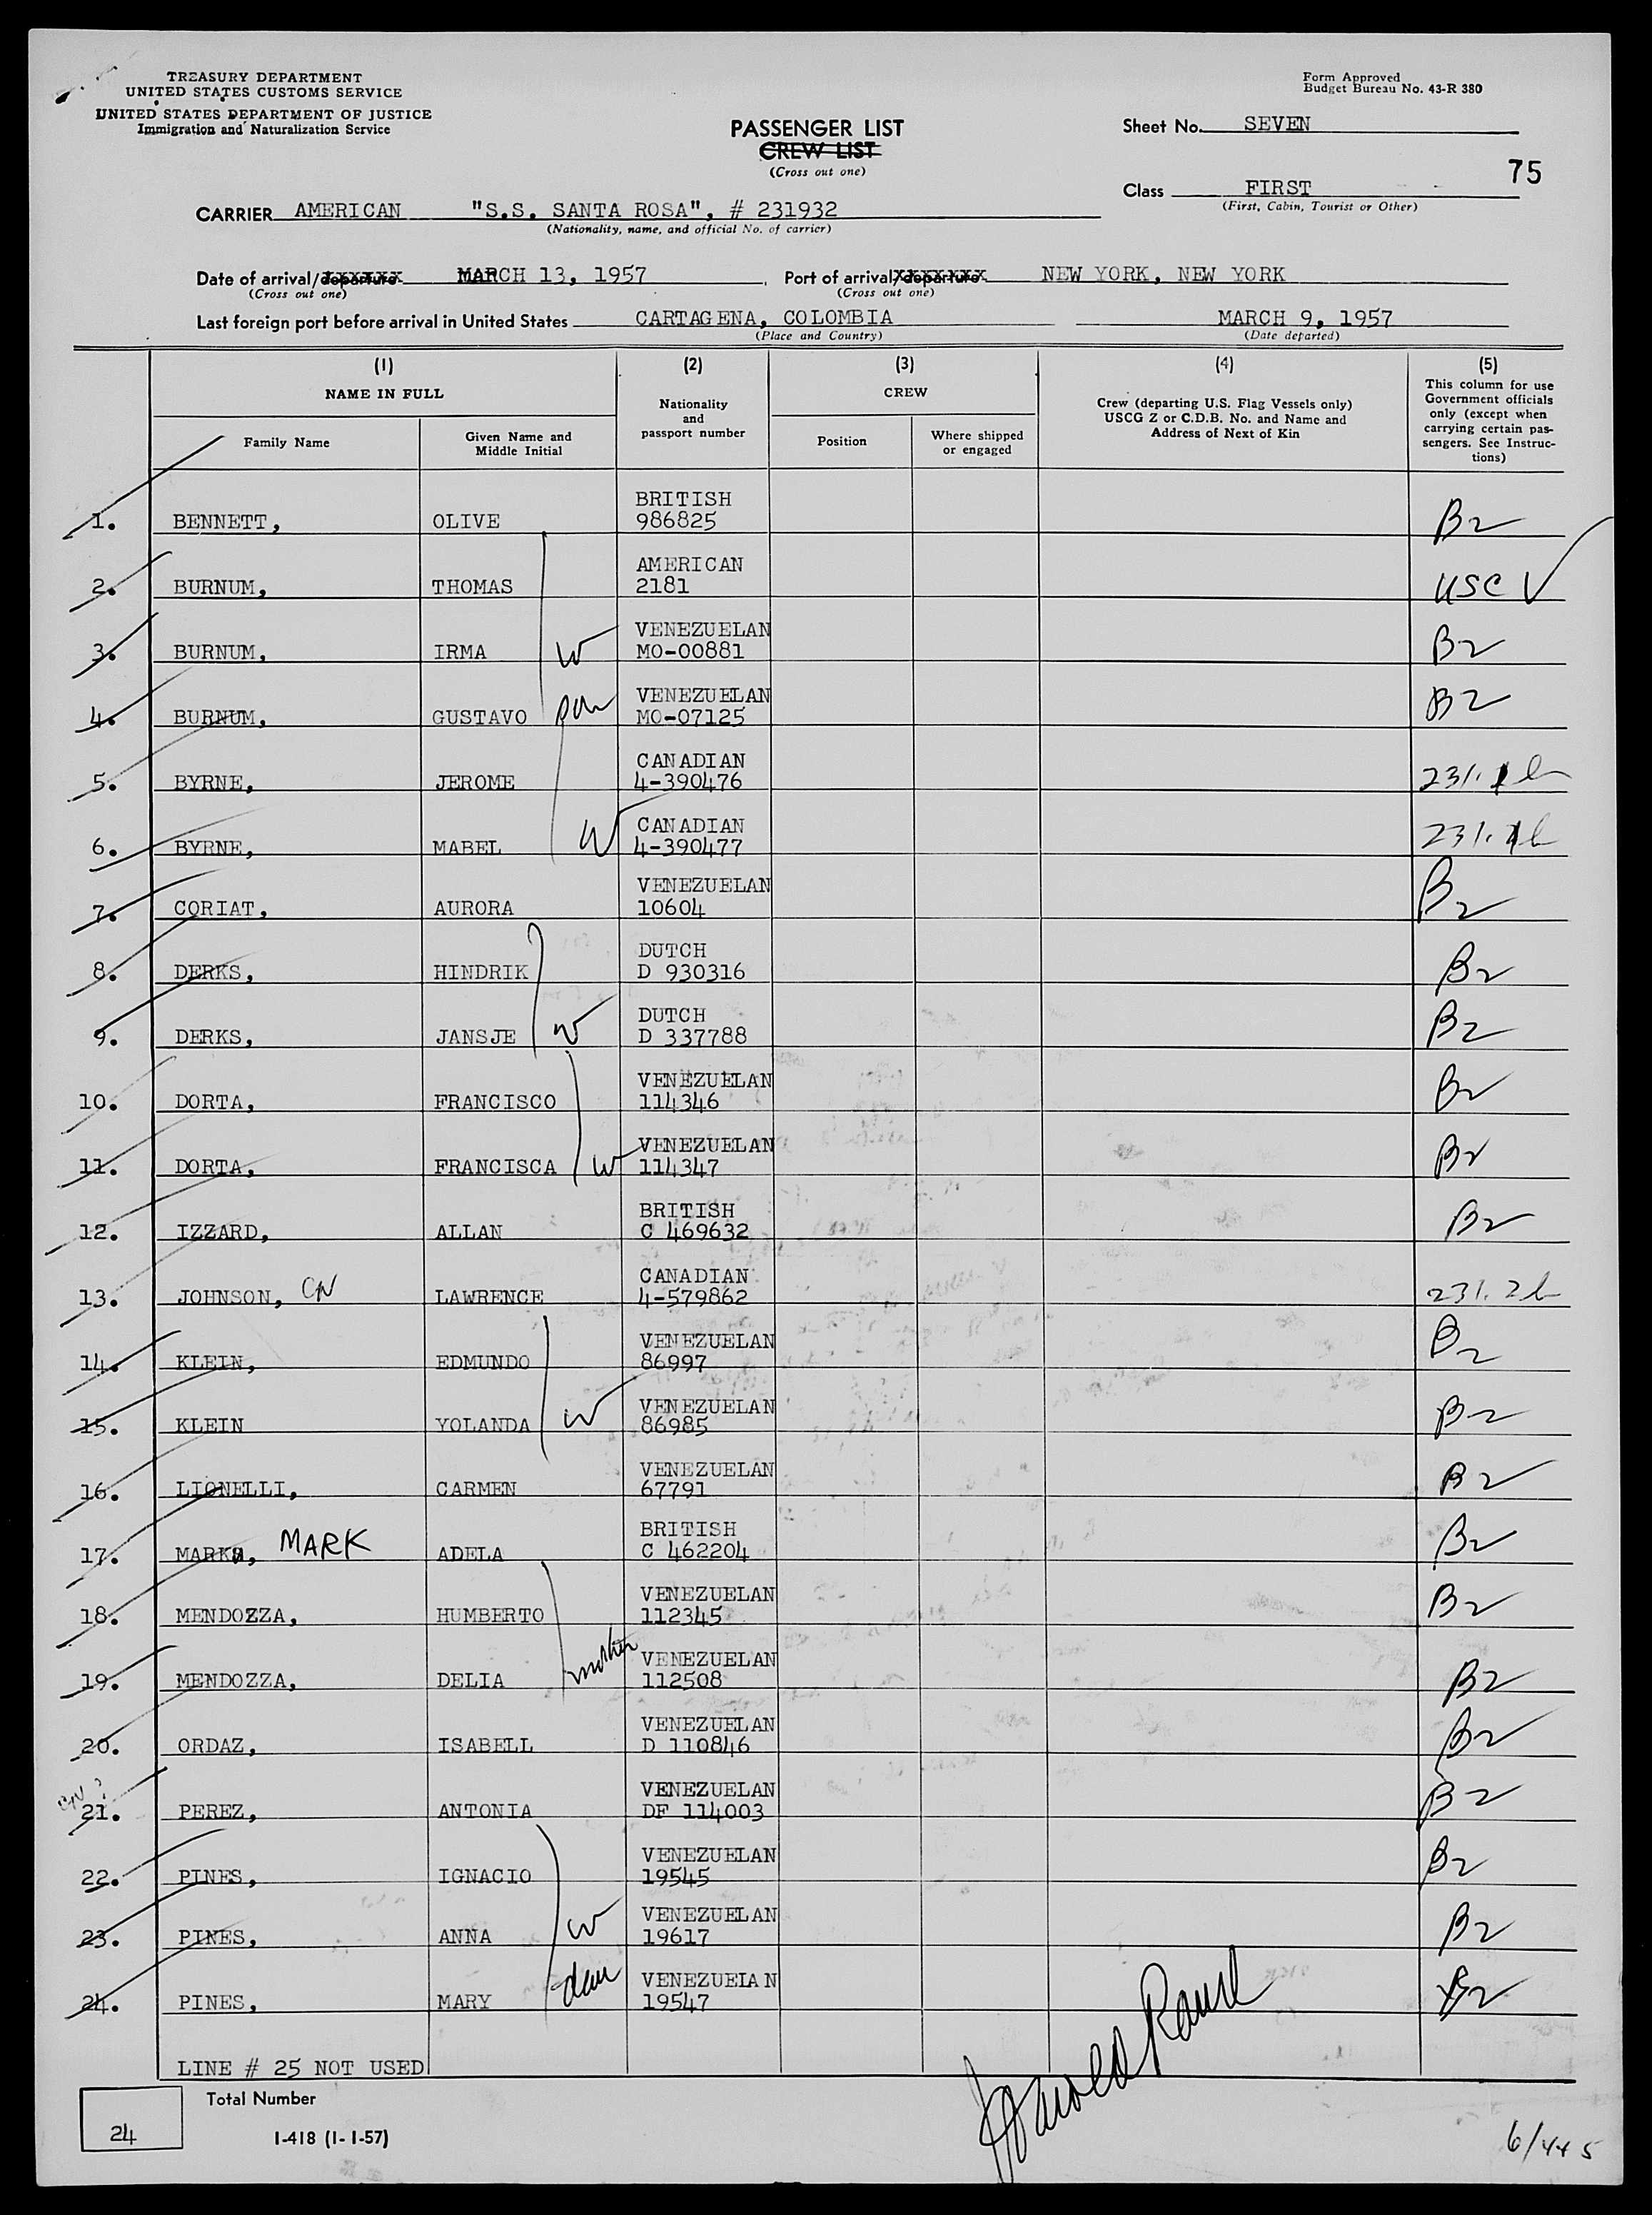 TREASURY DEPARTMENT
UNITED STATES CUSTOMS SERVICE
UNITED STATES DEPARTMENT OF JUSTICE
Immigration and Naturalization Service
Form Approved
Budget Bureau No. 43-R 380
PASSENGER LIST
CREW LIST
(Cross out one)
Sheet No. SEVEN
75
Class FIRST
(First, Cabin, Tourist or Other)
CARRIER AMERICAN "S.S. SANTA ROSA", # 231932
(Nationality, name, and official No. of carrier)
Date of arrival/departure MARCH 13, 1957 Port of arrival/departure NEW YORK, NEW YORK
(Cross out one) (Cross out one)
Last foreign port before arrival in United States CARTAGENA, COLOMBIA MARCH 9, 1957
(Place and Country) (Date departed)
(1) (2) (3) (4) (5)
NAME IN FULL
Family Name
Given Name and
Middle Initial
Nationality
and
passport number
CREW
Position
Where shipped
or engaged
Crew (departing U.S. Flag Vessels only)
USCG Z or C.D.B. No. and Name and
Address of Next of Kin
This column for use
Government officials
only (except when
carrying certain pas-
sengers. See Instruc-
tions)
BRITISH
1. BENNETT, OLIVE 986825 B2
AMERICAN
2. BURNUM, THOMAS 2181 USC
VENEZUELAN
3. BURNUM, IRMA W MO-00881 B2
VENEZUELAN
4. BURNUM, GUSTAVO MO-07125 B2
CANADIAN
5. BYRNE, JEROME 4-390476
CANADIAN
6. BYRNE, MABEL W 4-390477
VENEZUELAN
7. CORIAT, AURORA 10604 B2
DUTCH
8. DERKS, HINDRIK D 930316 B2
DUTCH
9. DERKS, JANSJE W D 337788 B2
VENEZUELAN
10. DORTA, FRANCISCO 114346 B2
VENEZUELAN
11. DORTA, FRANCISCA W 114347 B2
BRITISH
12. IZZARD, ALLAN C 469632 B2
CANADIAN
13. JOHNSON, CN LAWRENCE 4-579862 231.2b
VENEZUELAN
14. KLEIN, EDMUNDO 86997 B2
VENEZUELAN
15. KLEIN YOLANDA W 86985 B2
VENEZUELAN
16. LIONELLI, CARMEN 67791 B2
BRITISH
17. MARKS, MARK ADELA C 462204 B2
VENEZUELAN
18. MENDOZZA, HUMBERTO 112345 B2
VENEZUELAN
19. MENDOZZA, DELIA mother 112508 B2
VENEZUELAN
20. ORDAZ, ISABELL D 110846 B2
VENEZUELAN
21. PEREZ, ANTONIA DF 114003 B2
VENEZUELAN
22. PINES, IGNACIO 19545 B2
VENEZUELAN
23. PINES, ANNA W 19617 B2
VENEZUELAN
24. PINES, MARY dau 19547 B2
LINE # 25 NOT USED
Total Number
24
I-418 (1-1-57)
Harold